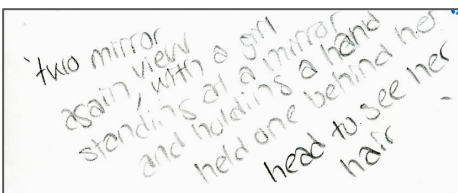 'two mirror
again view, with a girl
standing at a mirror
and holding a hand
held one behind her
head to see her
hair